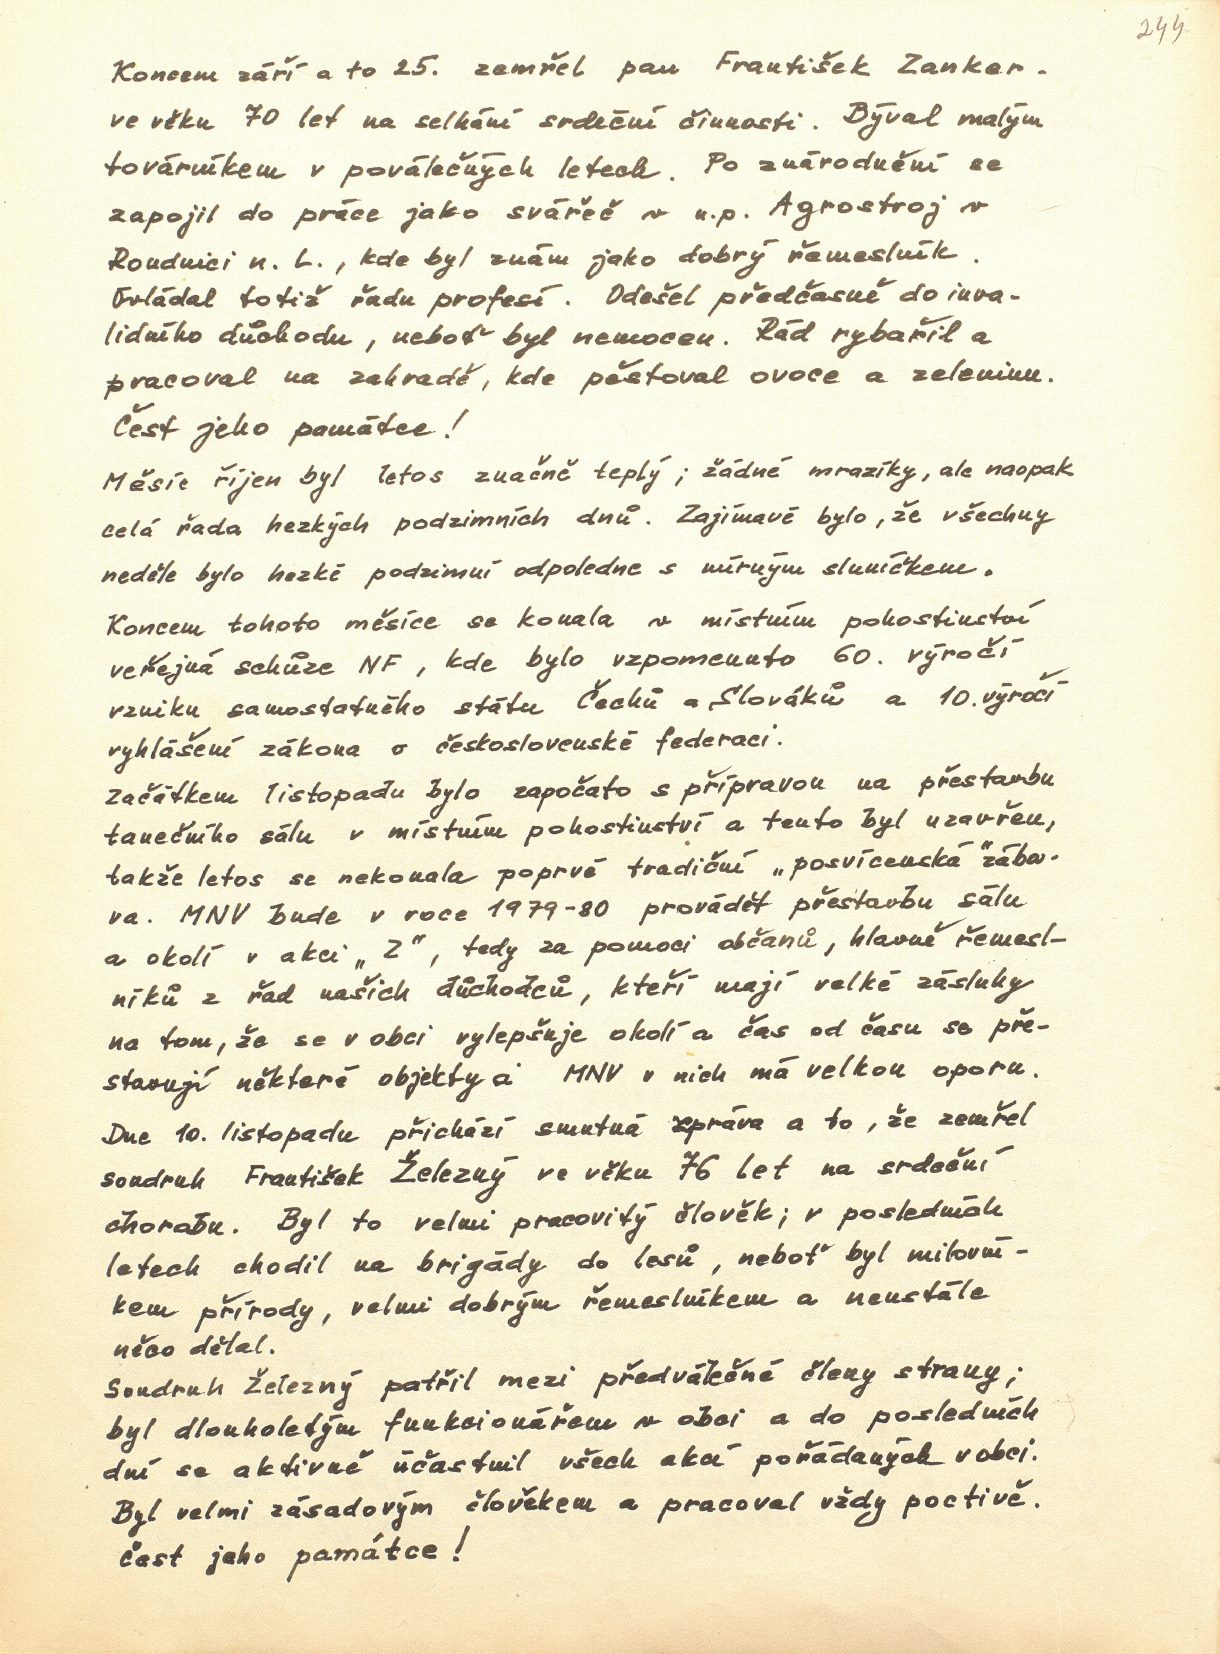 244
Koncem září a to 25. zemřel pan František Zanker.
ve věku 70 let na selhání srdeční činnosti. Býval malým
továrníkem v poválečných letech. Po znárodnění se
zapojil do práce jako svářeč v n.p. Agrostroj v
Roudnici n. L., kde byl znám jako dobrý řemeslník.
Ovládal totiž řadu profesí. Odešel předčasně do inva-
lidního důchodu, neboť byl nemocen. Rád rybařil a
pracoval na zahradě, kde pěstoval ovoce a zeleninu.
Čest jeho památce!
Měsíc říjen byl letos značně teplý; žádné mrazíky, ale naopak
celá řada hezkých podzimních dnů. Zajímavé bylo, že všechny
neděle bylo hezké podzimní odpoledne s mírným sluníčkem.
Koncem tohoto měsíce se konala v místním pohostinství
veřejná schůze NF, kde bylo vzpomenuto 60. výročí
vzniku samostatného státu Čechů a Slováků a 10. výročí
vyhlášení zákona o československé federaci.
Začátkem listopadu bylo započato s přípravou na přestavbu
tanečního sálu v místním pohostinství a tento byl uzavřen,
takže letos se nekonala poprvé tradiční „posvícenská" zába-
va. MNV bude v roce 1979-80 provádět přestavbu sálu
a okolí v akci „Z", tedy za pomoci občanů, hlavně řemesl-
níků z řad našich důchodců, kteří mají velké zásluhy
na tom, že se v obci vylepšuje okolí a čas od času se pře-
stavují některé objekty a MNV v nich má velkou oporu.
Dne 10. listopadu přichází smutná zpráva a to, že zemřel
soudruh František Železný ve věku 76 let na srdeční
chorobu. Byl to velmi pracovitý člověk; v posledních
letech chodil na brigády do lesů, neboť byl milovní-
kem přírody, velmi dobrým řemeslníkem a neustále
něco dělal.
Soudruh Železný patřil mezi předválečné členy strany;
byl dlouholetým funkcionářem v obci a do posledních
dní se aktivně účastnil všech akcí pořádaných v obci.
Byl velmi zásadovým člověkem a pracoval vždy poctivě.
Čest jeho památce!